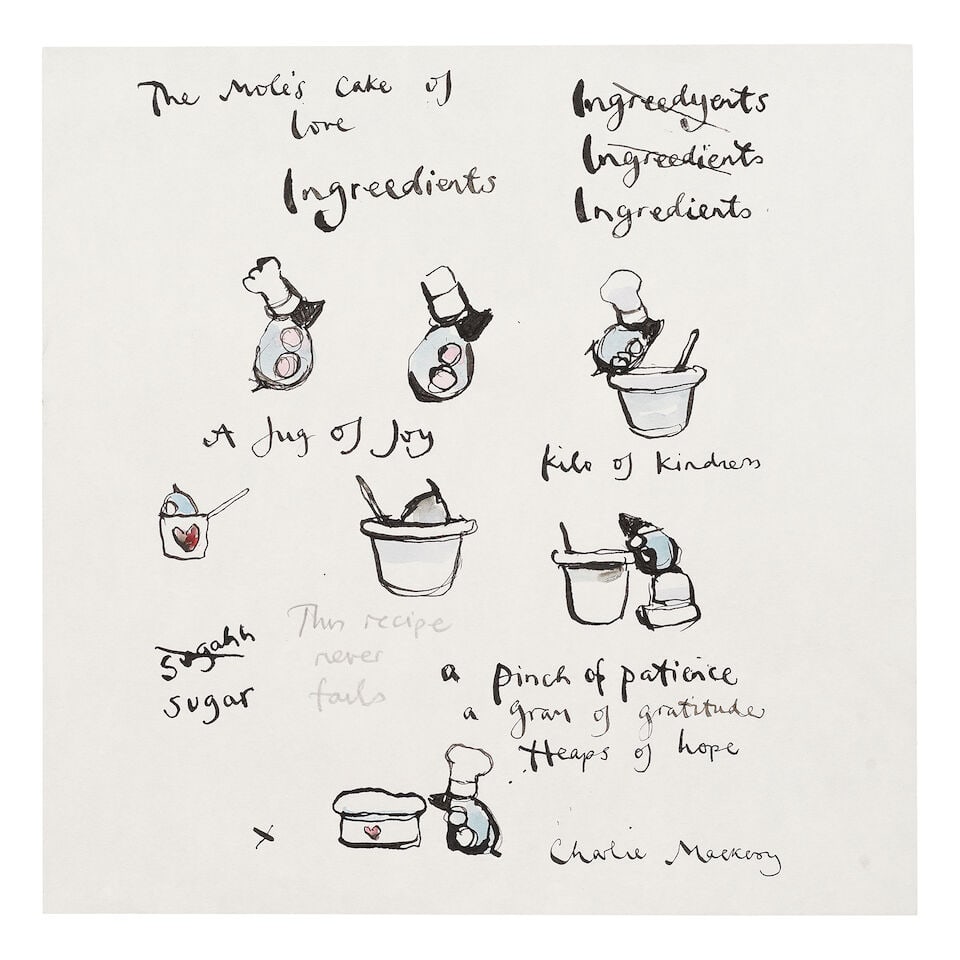 The Mole's Cake of
love
Ingreedients
Ingreedyents
Ingreedients
Ingredients
A Jug of Joy
kilo of kindness
Sugahh
sugar
This recipe
never
fails
a pinch of patience
a Gram of gratitude
Heaps of hope
x
Charlie Mackesy